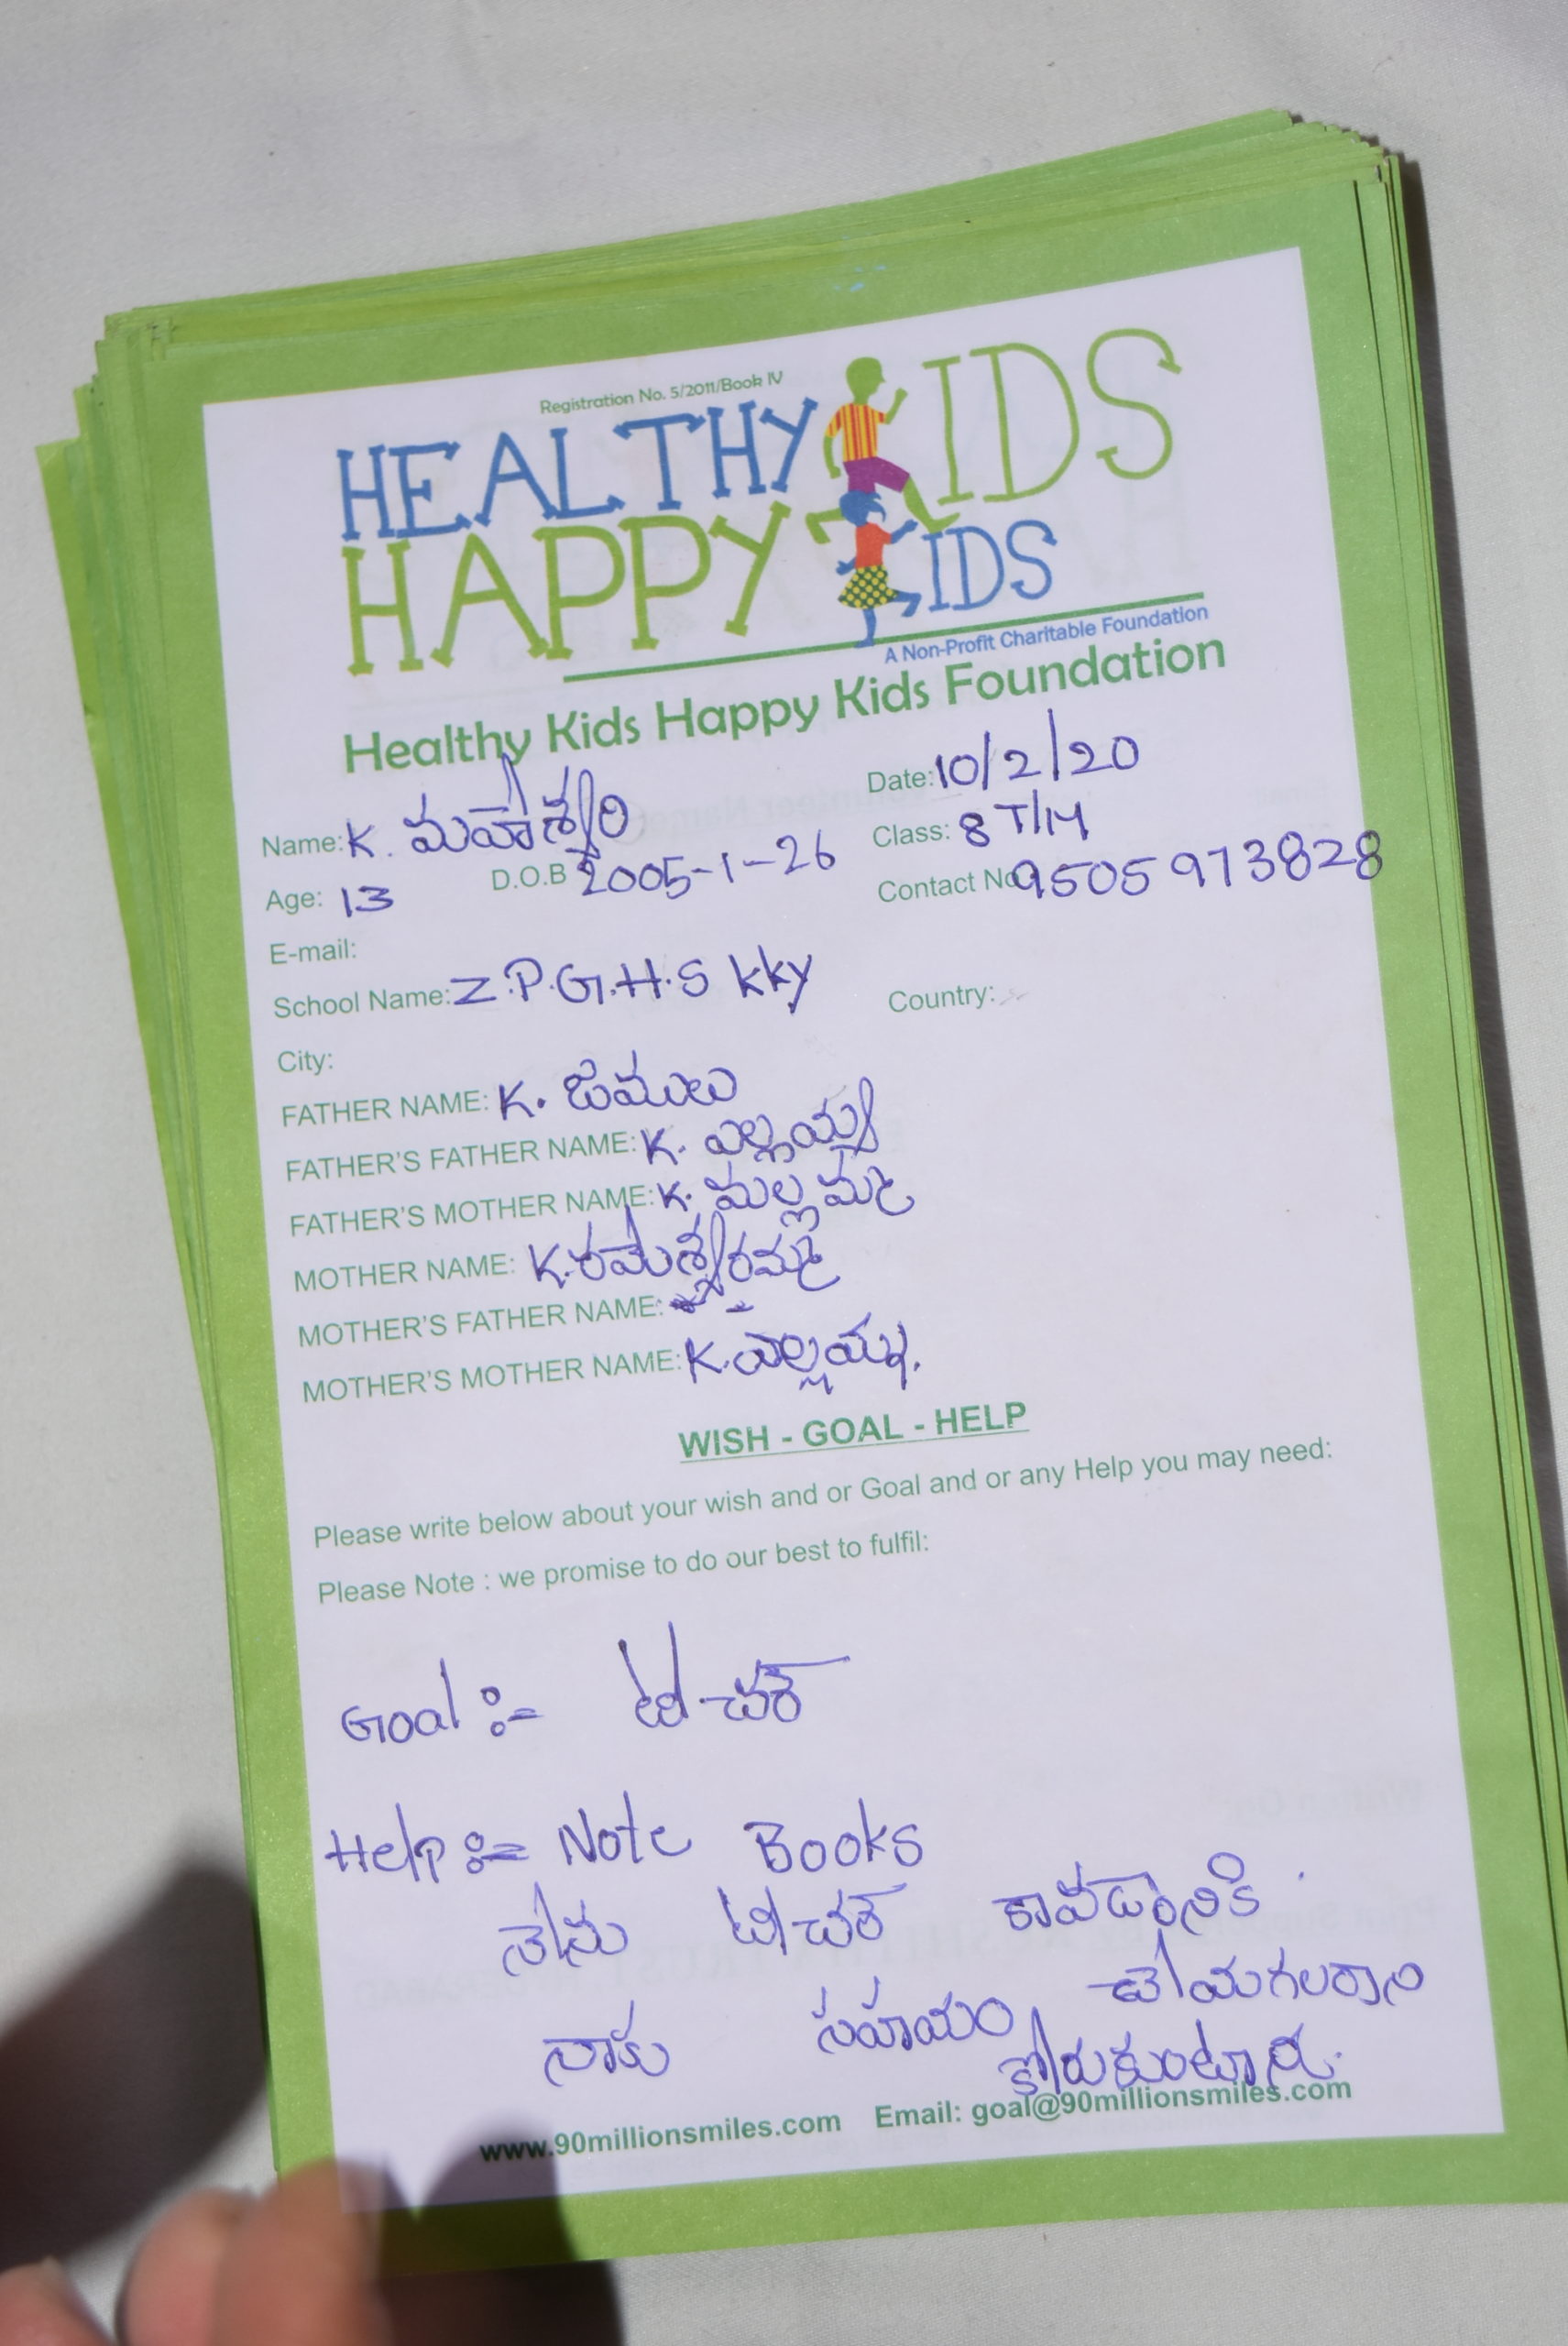 Registration No. 5/2011/Book IV
HEALTHY KIDS
HAPPY KIDS
A Non-Profit Charitable Foundation
Healthy Kids Happy Kids Foundation
Date: 10/2/20
Name: K. మహేశ్వరి
Class: 8 T/M
Age: 13 D.O.B 2005-1-26
Contact No 9505973828
E-mail:
School Name: Z.P.G.H.S kky
Country:
City:
FATHER NAME: K. జములు
FATHER'S FATHER NAME: K. ఎల్లయ్య
FATHER'S MOTHER NAME: K. మల్లమ్మ
MOTHER NAME: K. రమేశ్వరమ్మ
MOTHER'S FATHER NAME:
MOTHER'S MOTHER NAME: K. ఎల్లయ్య.
WISH - GOAL - HELP
Please write below about your wish and or Goal and or any Help you may need:
Please Note : we promise to do our best to fulfil:
Goal :- టీచర్
Help :- Note Books
నేను టీచర్ కావడానికి
నాకు సహయం చేయగలరాని
కోరుకుంటాను.
www.90millionsmiles.com Email: goal@90millionsmiles.com